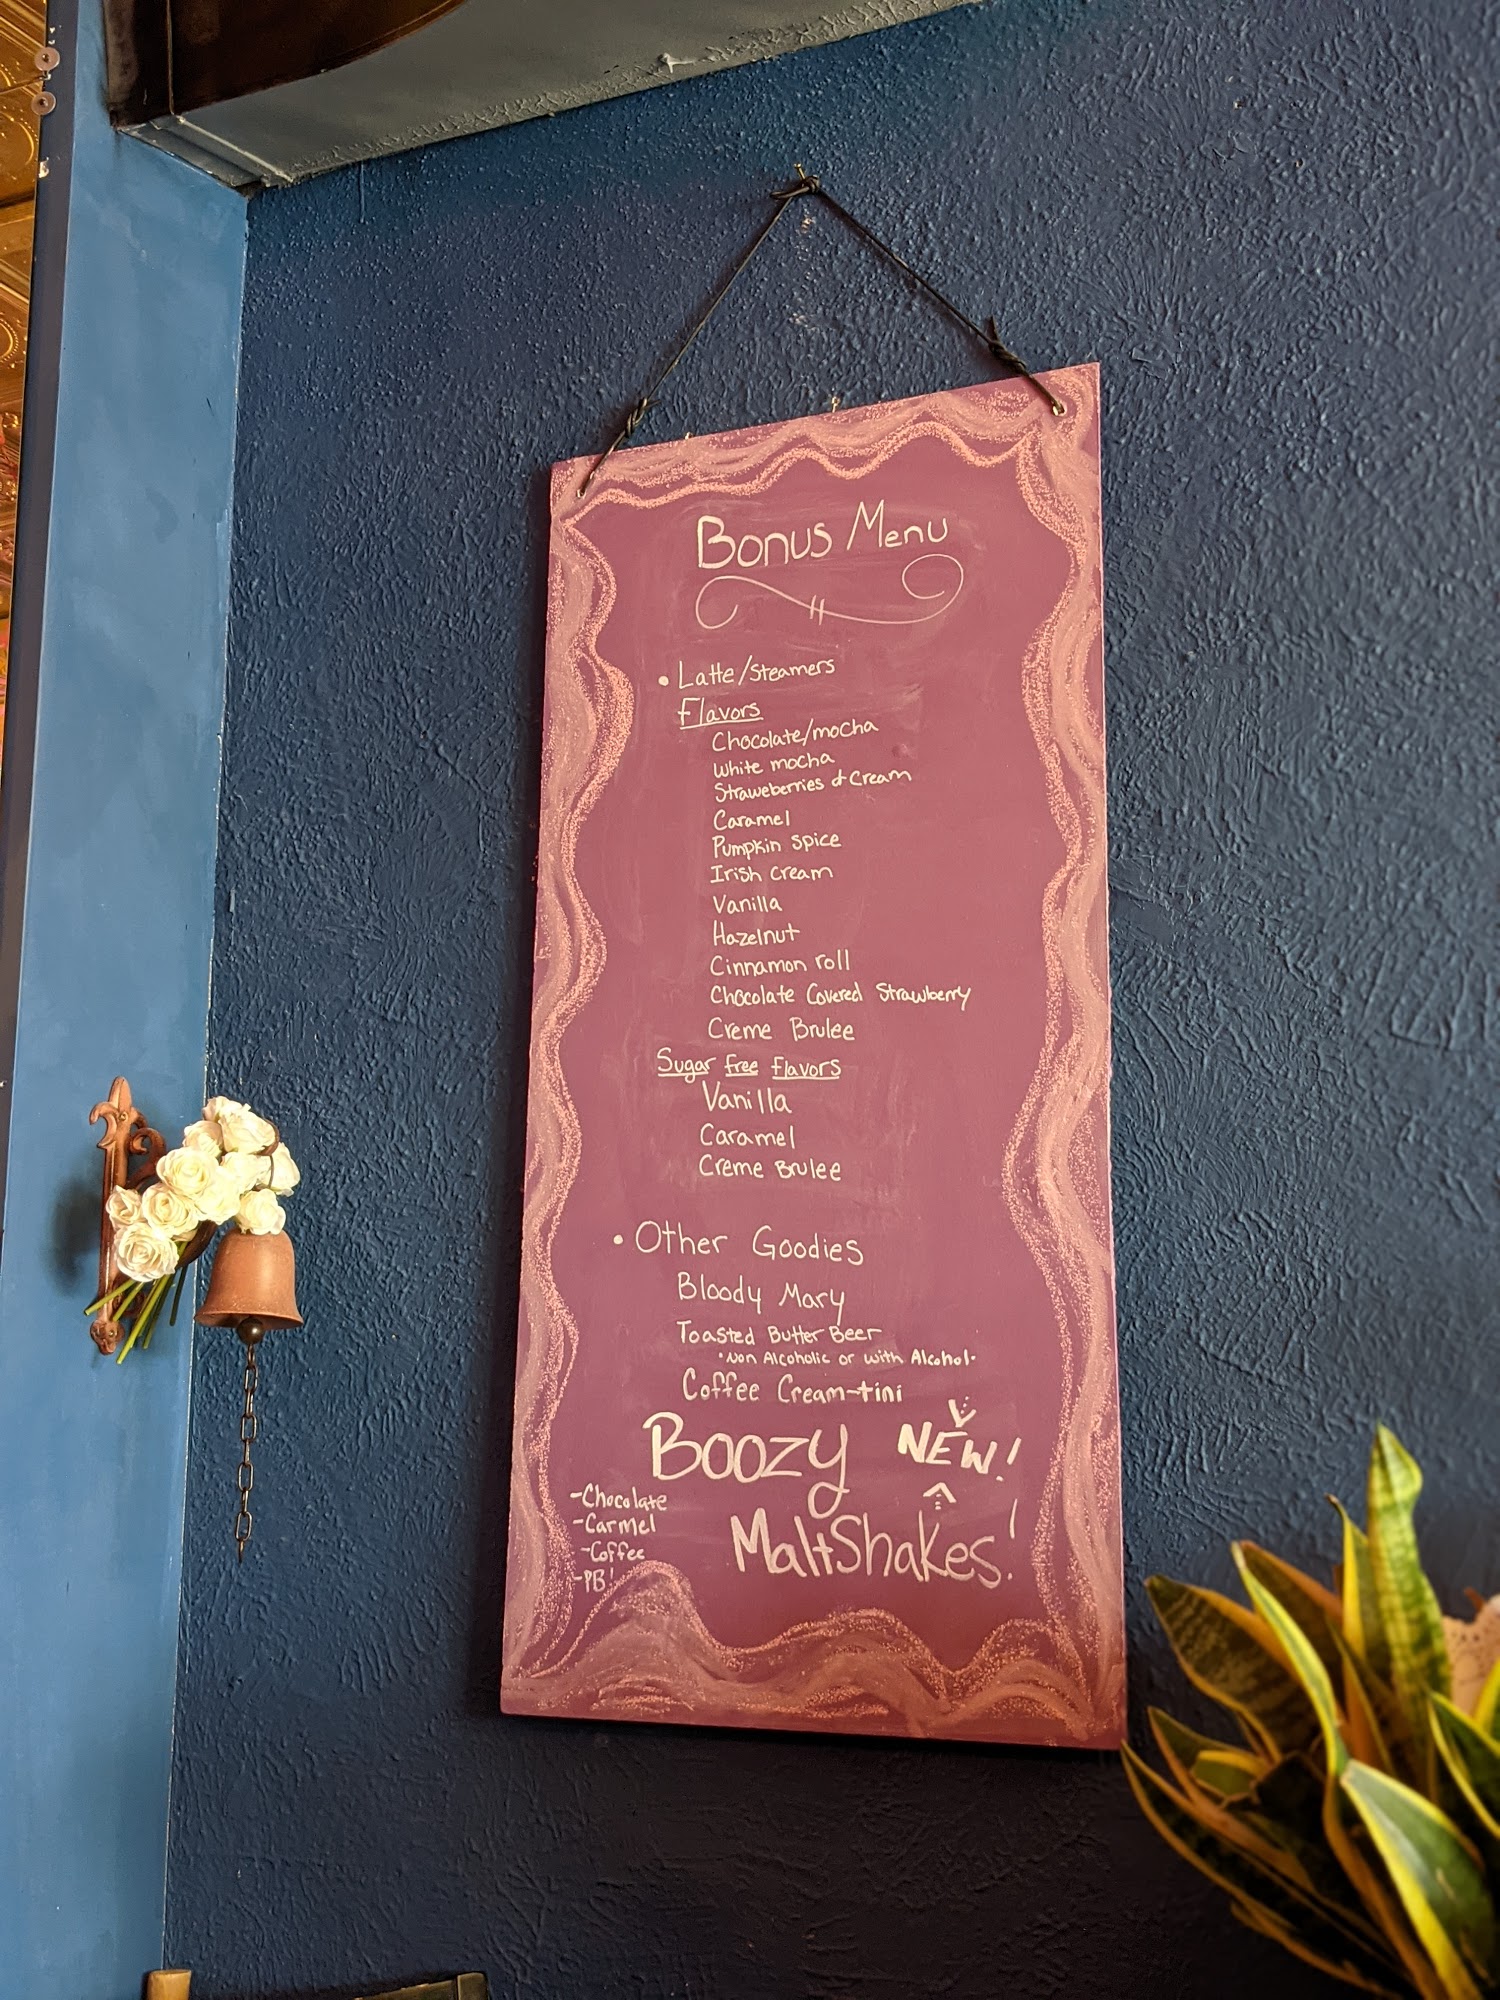 Bonus Menu
• Latte/Steamers
Flavors
Chocolate/mocha
White mocha
Straweberries & Cream
Caramel
Pumpkin spice
Irish cream
Vanilla
Hazelnut
Cinnamon roll
Chocolate Covered Strawberry
Creme Brulee
Sugar free flavors
Vanilla
Caramel
Creme Brulee
• Other Goodies
Bloody Mary
Toasted Butter Beer
•Non Alcoholic or with Alcohol•
Coffee Cream-tini
Boozy NEW!
MaltShakes!
-Chocolate
-Carmel
-Coffee
-PB!